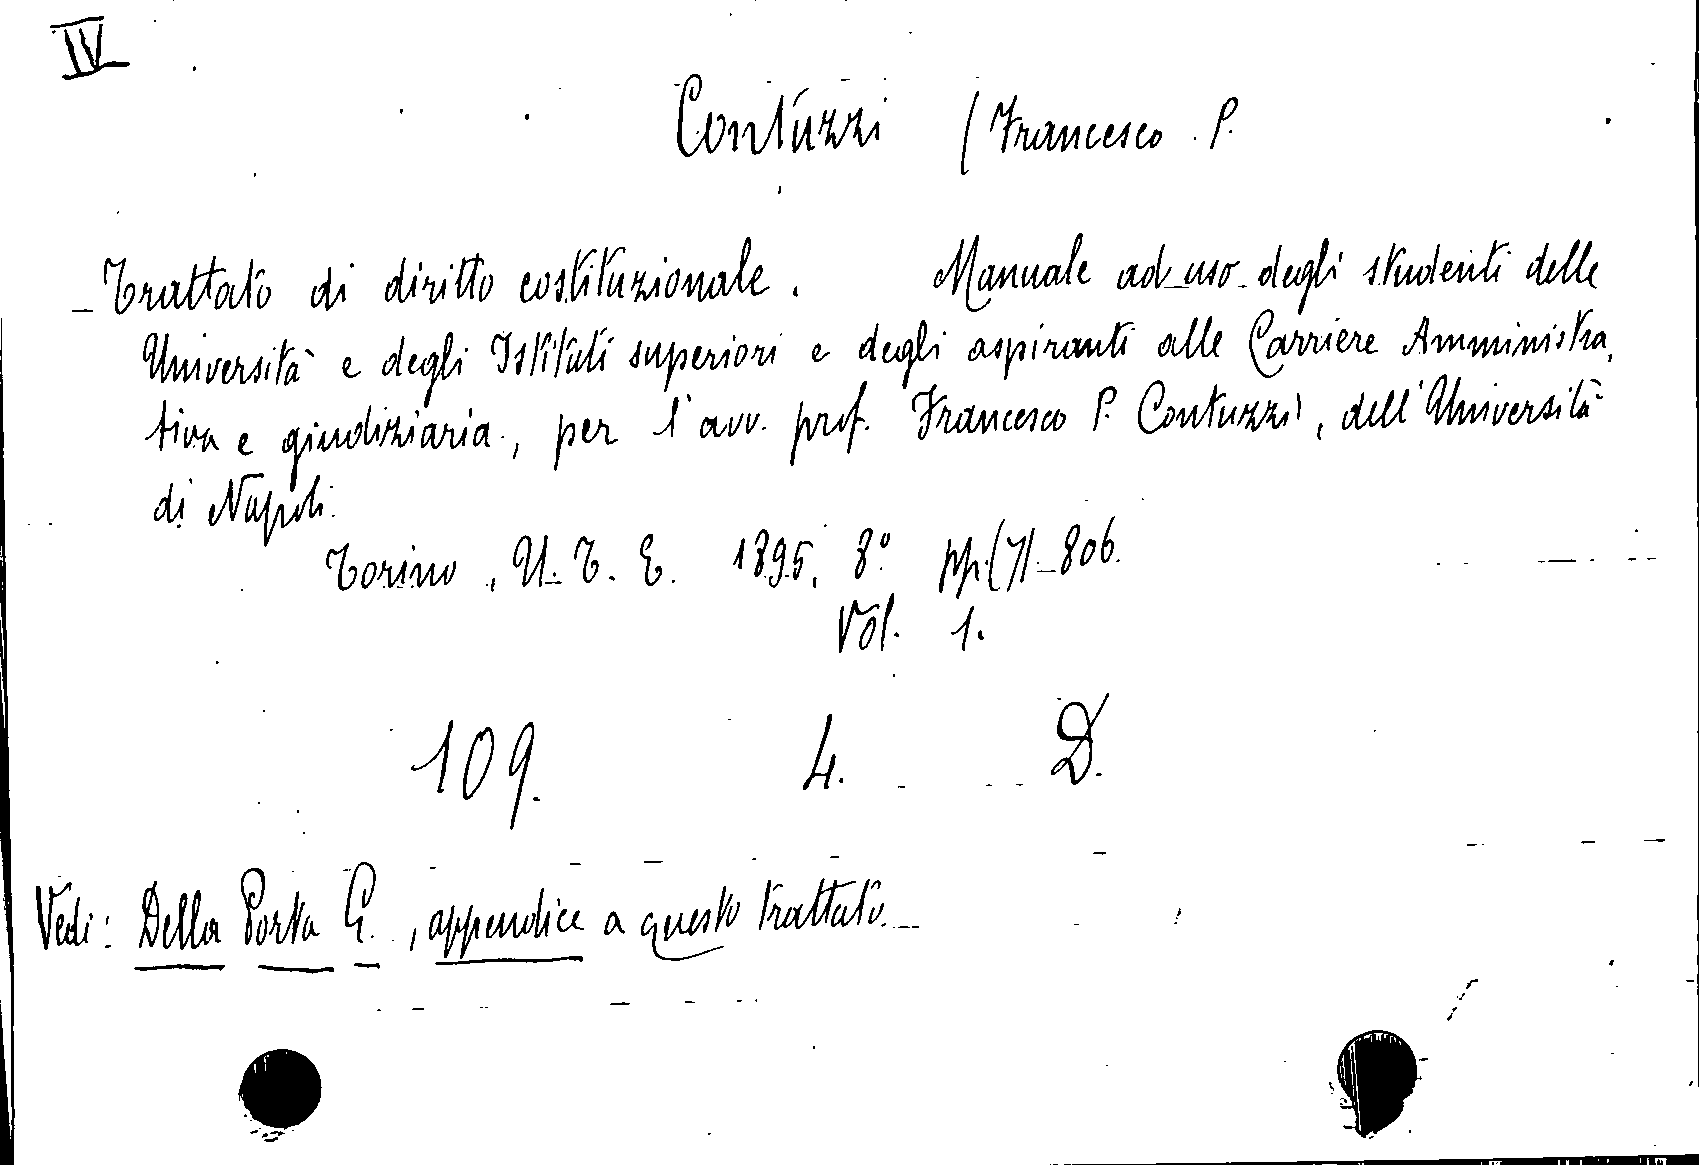 IV
Contuzzi (Francesco P.
- Trattato di diritto costituzionale. Manuale ad uso degli studenti delle
Università e degli Istituti superiori e degli aspiranti alle Carriere Amministra,
tiva e giudiziaria, per l'avv. prof. Francesco P. Contuzzi, dell'Università
di Napoli.
Torino, U. T. E. 1895, 8° pp. (7)-806.
Vol. 1.
109. 4. D.
Vedi: Della Porta G., appendice a questo trattato.